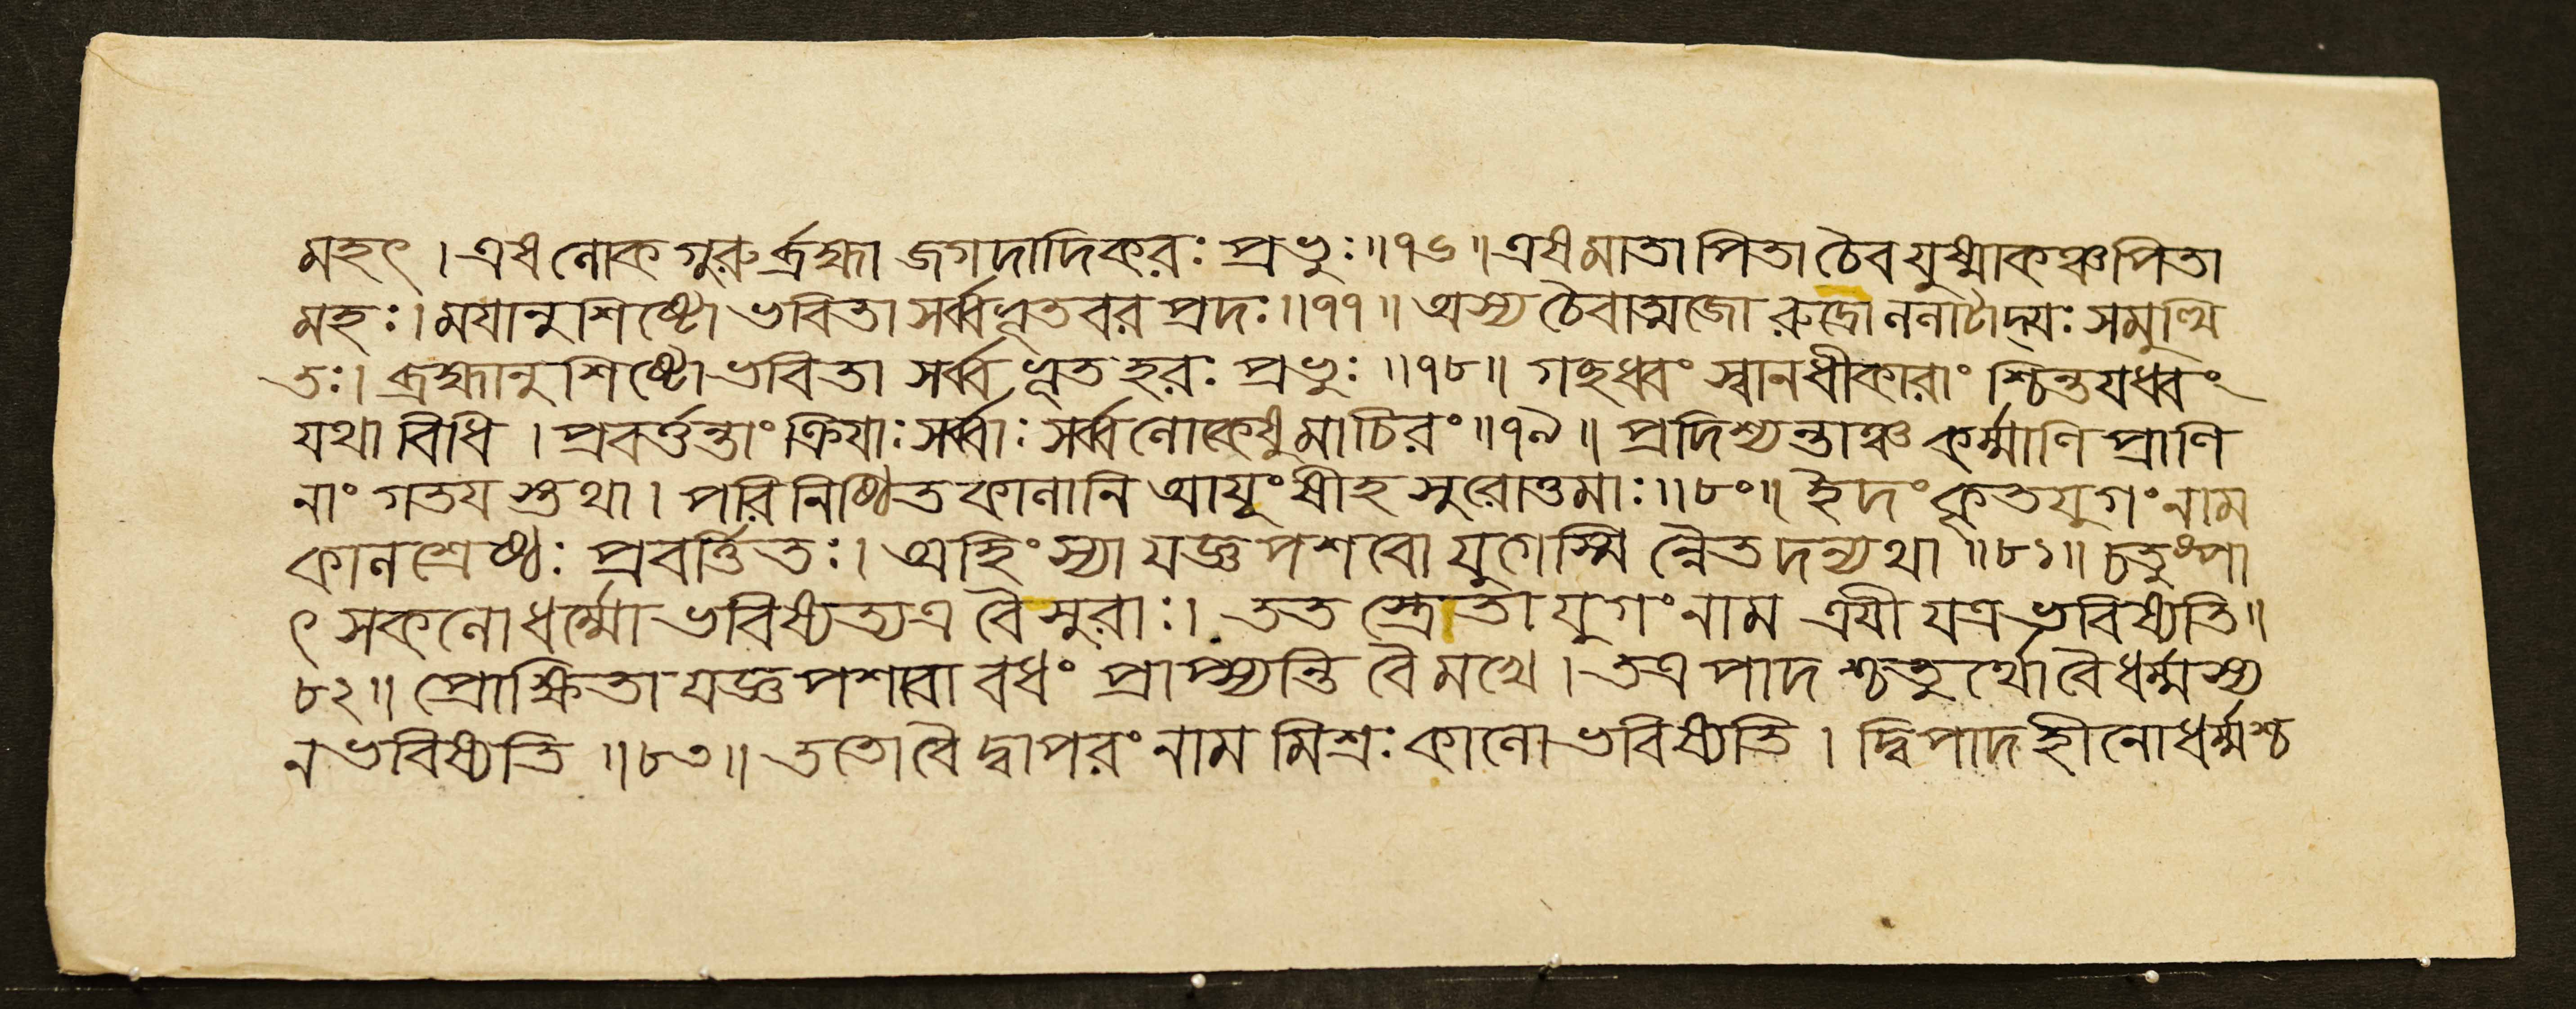 মহৎ । এষ লোক গুরুর্ব্রহ্মা জগদাদিকরঃ প্রভুঃ ॥৭৬॥ এষ মাতা পিতা চৈব যুষ্মাকঞ্চ পিতা
মহঃ । ময়ানুশিষ্টো ভবিতা সর্ব্বভূতবর প্রদঃ ॥৭৭॥ অস্য চৈবাত্মজো রুদ্রো ললাটাদ্যঃ সমুত্থি
তঃ । ব্রহ্মানুশিষ্টো ভবিতা সর্ব্ব ভূত হরঃ প্রভুঃ ॥৭৮॥ গছধ্বং স্বানধীকারাং শ্চিন্তয়ধ্বং
যথা বিধি । প্রবর্ত্তন্তাং ক্রিয়াঃ সর্ব্বাঃ সর্ব্বলোকেষু মাচিরং ॥৭৯॥ প্রদিশ্যন্তাঞ্চ কর্ম্মাণি প্রাণি
নাং গতয় স্তথা । পরিনিষ্ঠিত কালানি আয়ূংষীহ সুরোত্তমাঃ ॥৮০॥ ইদং কৃতযুগং নাম
কালশ্রেষ্ঠঃ প্রবর্ত্তিতঃ । অহিংস্যা যজ্ঞপশবো যুগেস্মি ন্নৈতদন্যথা ॥৮১॥ চতুষ্পা
ৎ সকলো ধর্ম্মো ভবিষ্যত্যত্র বৈ সুরাঃ । তত স্ত্রেতা যুগং নাম ত্রয়ী যত্র ভবিষ্যতি ॥
৮২॥ প্রোক্ষিতা যজ্ঞপশবো বধং প্রাপ্স্যন্তি বৈ মখে । তত্র পাদ শ্চতুর্থো বৈ ধর্ম্মস্য
ন ভবিষ্যতি ॥৮৩॥ ততো বৈ দ্বাপরং নাম মিশ্রঃ কালো ভবিষ্যতি । দ্বিপাদহীনো ধর্ম্মশ্চ